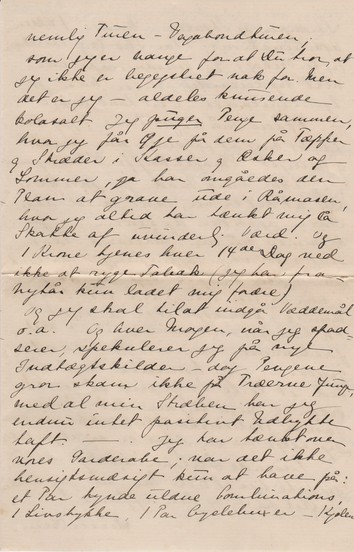 nemlig Turen - Vagabondturen,
som jeg er bange for at Du tror, at
jeg ikke er begejstret nok for. Men
det er jeg - aldeles knusende
kolosalt. Jeg puger Penge sammen,
hvor jeg får Øje på dem, på Tæpper
og Stræder i Kasser og Æsker og
Lommer, ja har omgåedes den
Plan at grave ude i
hvor jeg altid har tænkt mig en
Skatte af uvurderlig Værd. Og
1 Krone tjenes hver 14de Dag ved
ikke at ryge Tobak (jeg har fra
nytår kun ladet mig
Og jeg skal til at indgå Væddemål
o.a. Og hver Morgen, når jeg spad-
serer, spekulerer jeg på nye
Indtægtskilder - dog Pengene
gror skam ikke på Træerne
med al min Stræben har jeg
endnu intet positivt Udbytte
haft - . Jeg har tænkt over
vores Garderobe; var det ikke
hensigtsmæsigt kun at have på:
et Par tynde uldne Combinations,
1 Livstykke, 1 Par Cyclebuxer - Kjolen